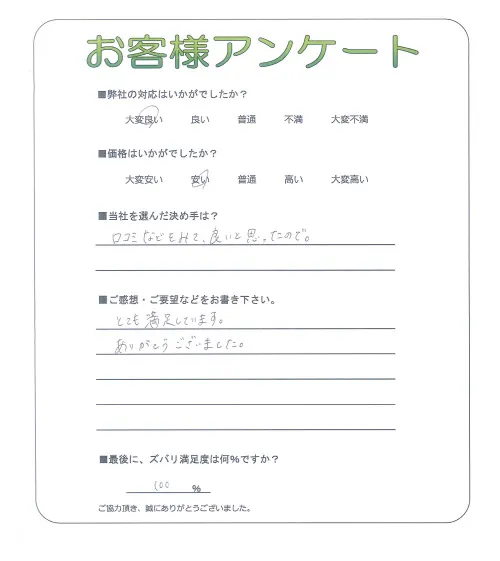 お客様アンケート
■弊社の対応はいかがでしたか？
大変良い 良い 普通 不満 大変不満
■価格はいかがでしたか？
大変安い 安い 普通 高い 大変高い
■当社を選んだ決め手は？
口コミなどを見て、良いと思ったので。
■ご感想・ご要望などをお書き下さい。
とても満足しています。
ありがとうございました。
■最後に、ズバリ満足度は何％ですか？
100 %
ご協力頂き、誠にありがとうございました。